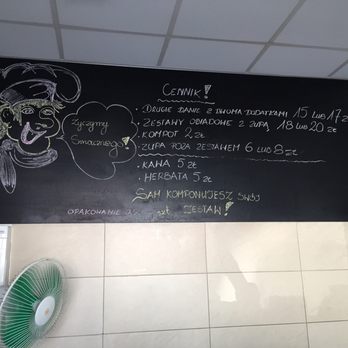 CENNIK!
• DRUGIE DANIE Z DWOMA DODATKAMI 15 LUB 17 ZŁ
• ZESTAWY OBIADOWE Z ZUPĄ 18 LUB 20 ZŁ
• KOMPOT 2 ZŁ
• ZUPA POZA ZESTAWEM 6 LUB 8 ZŁ
• KAWA 5 ZŁ
• HERBATA 5 ZŁ
SAM KOMPONUJESZ SWÓJ
ZESTAW!
Życzymy
Smacznego!
OPAKOWANIE